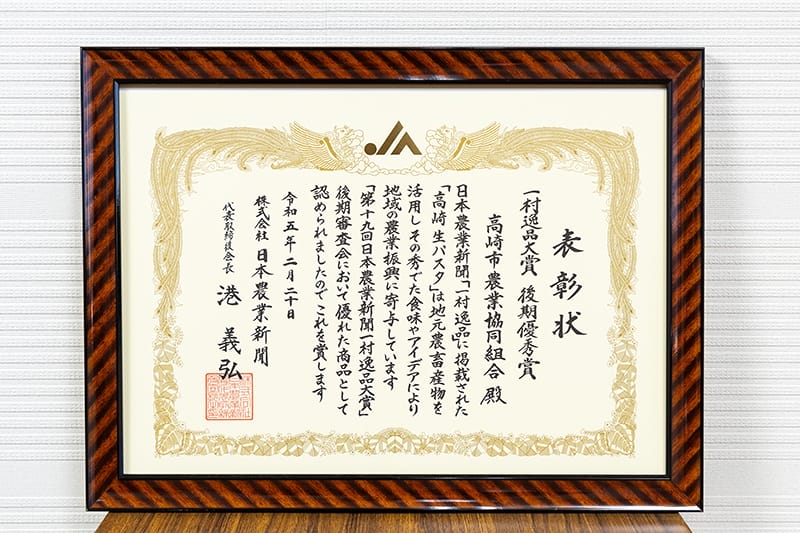 表彰状
一村逸品大賞 後期優秀賞
高崎市農業協同組合 殿
日本農業新聞「一村逸品」に掲載された
「高崎 生パスタ」は地元農畜産物を
活用し その秀でた食味やアイデアにより
地域の農業振興に寄与しています
「第十九回日本農業新聞一村逸品大賞」
後期審査会において優れた商品として
認められましたので これを賞します
令和五年二月二十日
株式会社 日本農業新聞
代表取締役会長 港 義弘